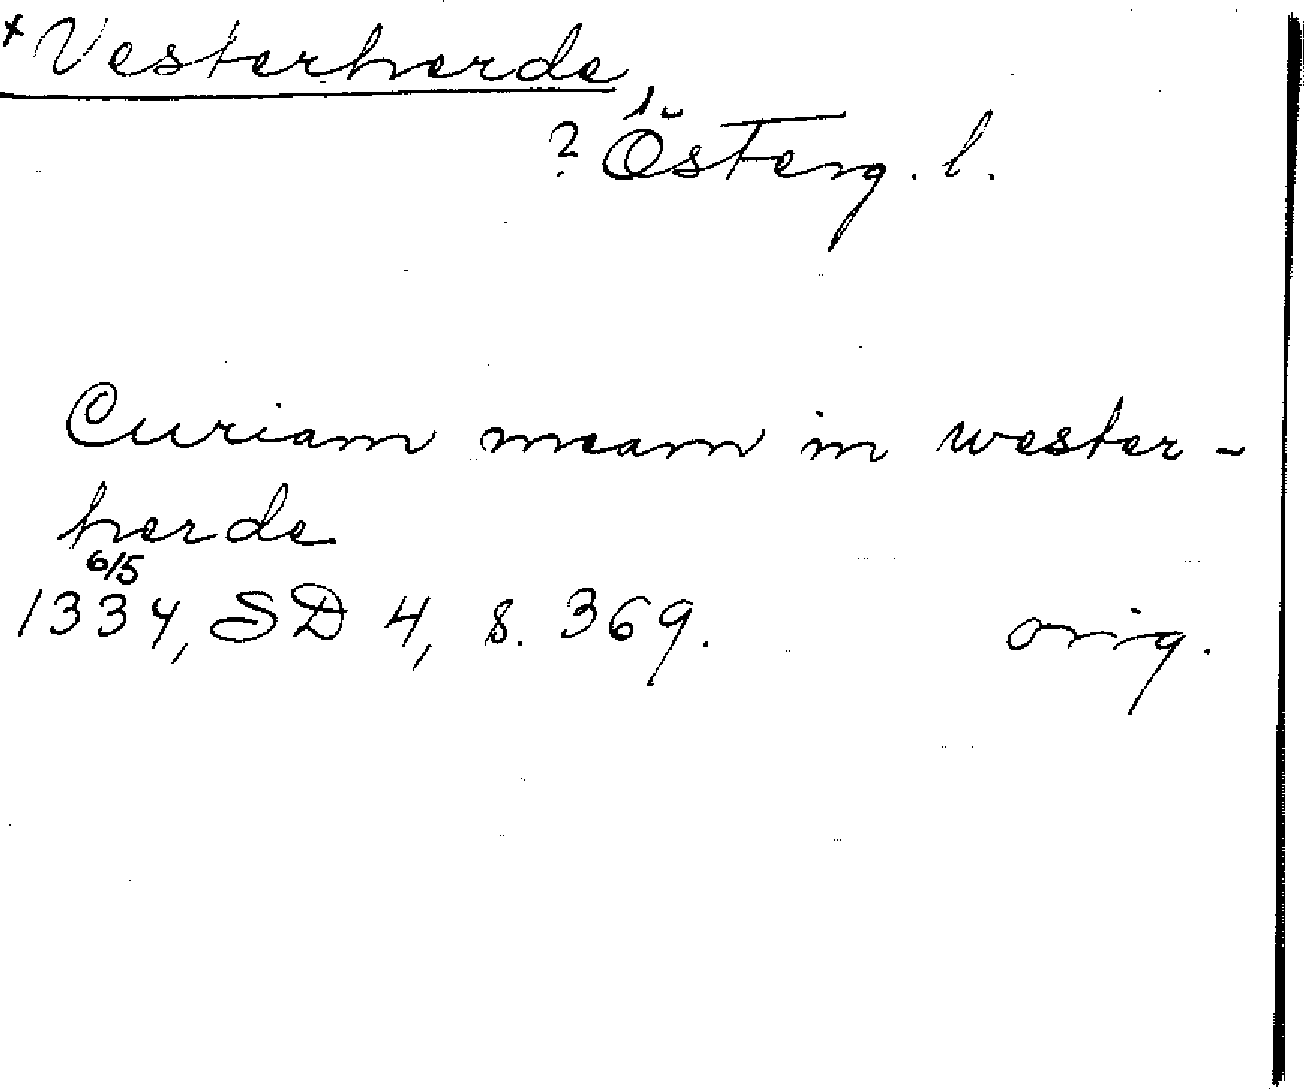 × Vesterherde
? Österg. l.
Curiam meam in wester-
herde
6/5
1334, SD 4, s. 369. orig.